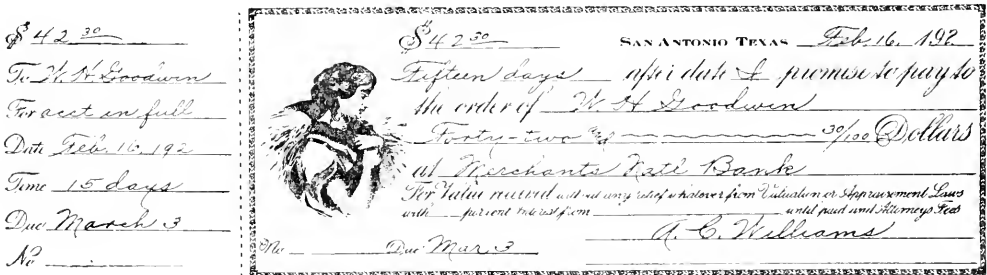 $ 42 30
To W. H. Goodwin
For acct in full
Date Feb. 16, 192
Time 15 days
Due March 3
No
$42 30 SAN ANTONIO TEXAS Feb. 16. 192
Fifteen days after date I promise to pay to
the order of W H Goodwin
Forty-two 30/100 Dollars
at Merchants Natl Bank
For Value received without any relief whatever from Valuation or Appraisement Laws
with per cent interest from until paid and Attorneys Fees
A. C. Williams
No Due Mar 3